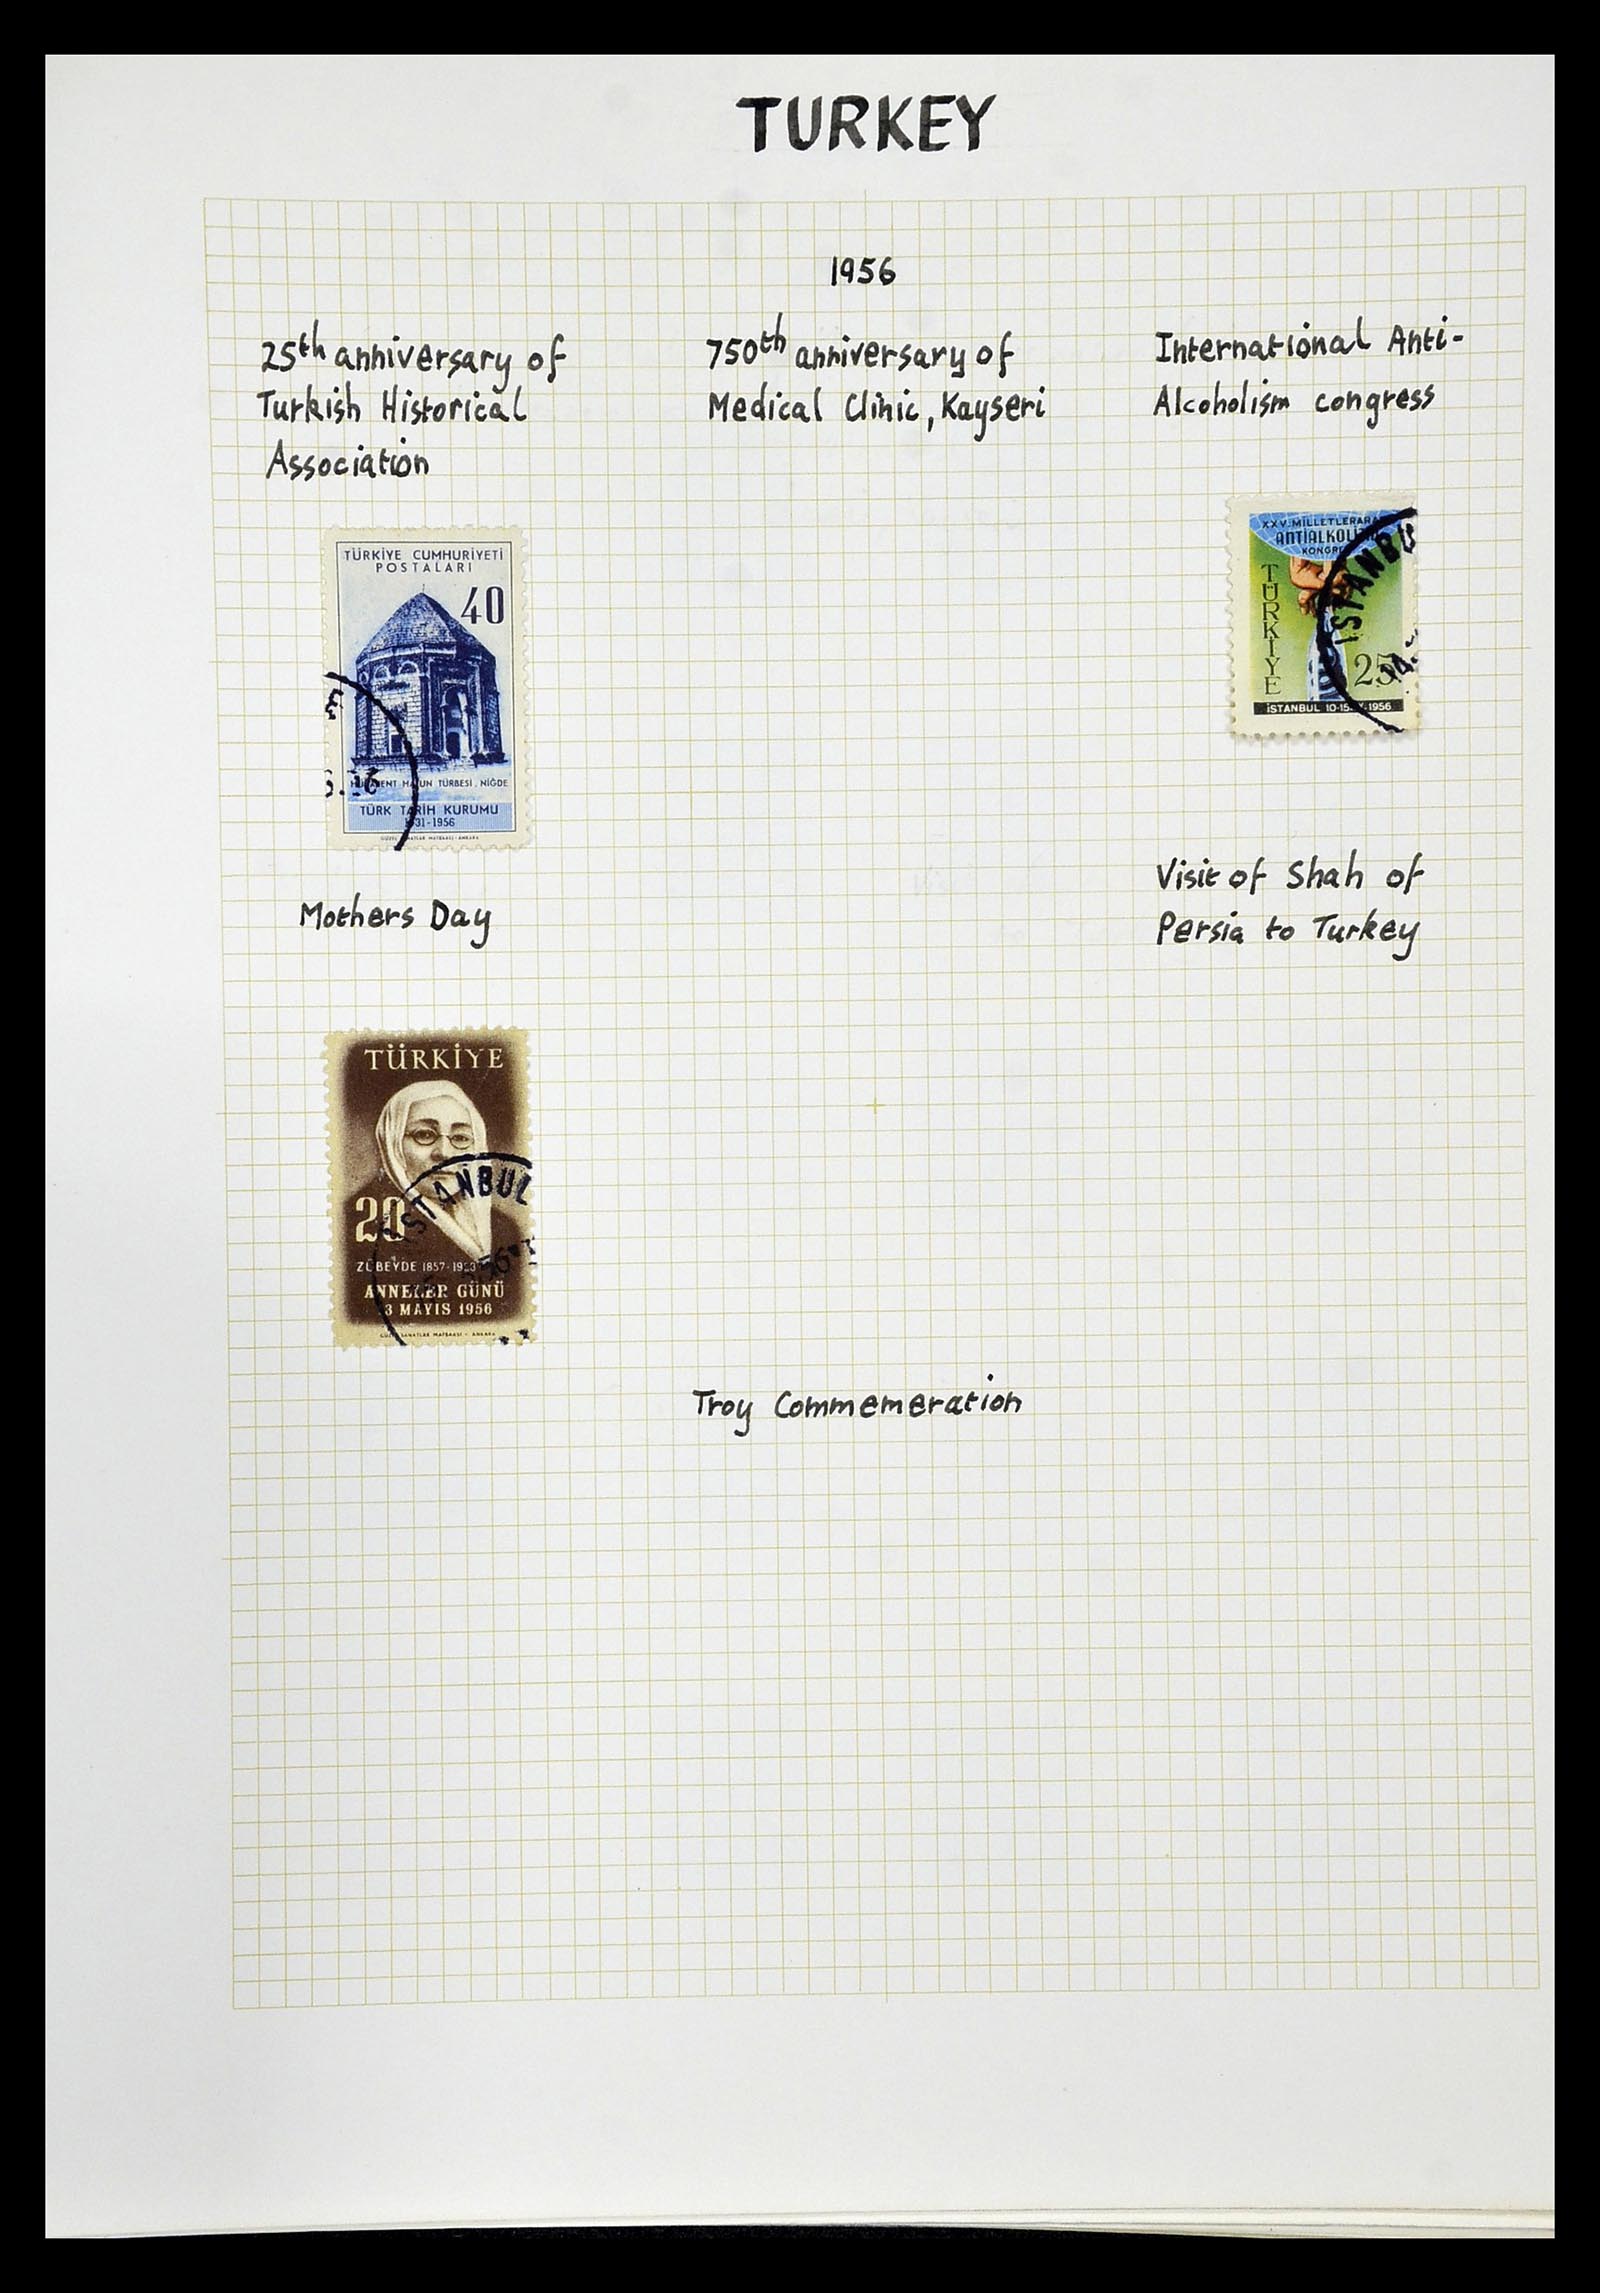 TURKEY
1956
25th anniversary of
Turkish Historical
Association
750th anniversary of
Medical Clinic, Kayseri
International Anti-
Alcoholism congress
TÜRKİYE CUMHURİYETİ
POSTALARI
40
TÜRBESİ . NİĞDE
TÜRK TARİH KURUMU
1931-1956
XXV. MİLLETLERARA
ANTİALKOLİZM
KONGRE
TÜRKİYE
25
İSTANBUL 10-15 1956
İSTANBU
Mothers Day
Visit of Shah of
Persia to Turkey
TÜRKİYE
20
İSTANBUL
ZÜBEYDE 1857-1923
ANNELER GÜNÜ
13 MAYIS 1956
GÜZEL SANATLAR MATBAASI - ANKARA
Troy Commemeration